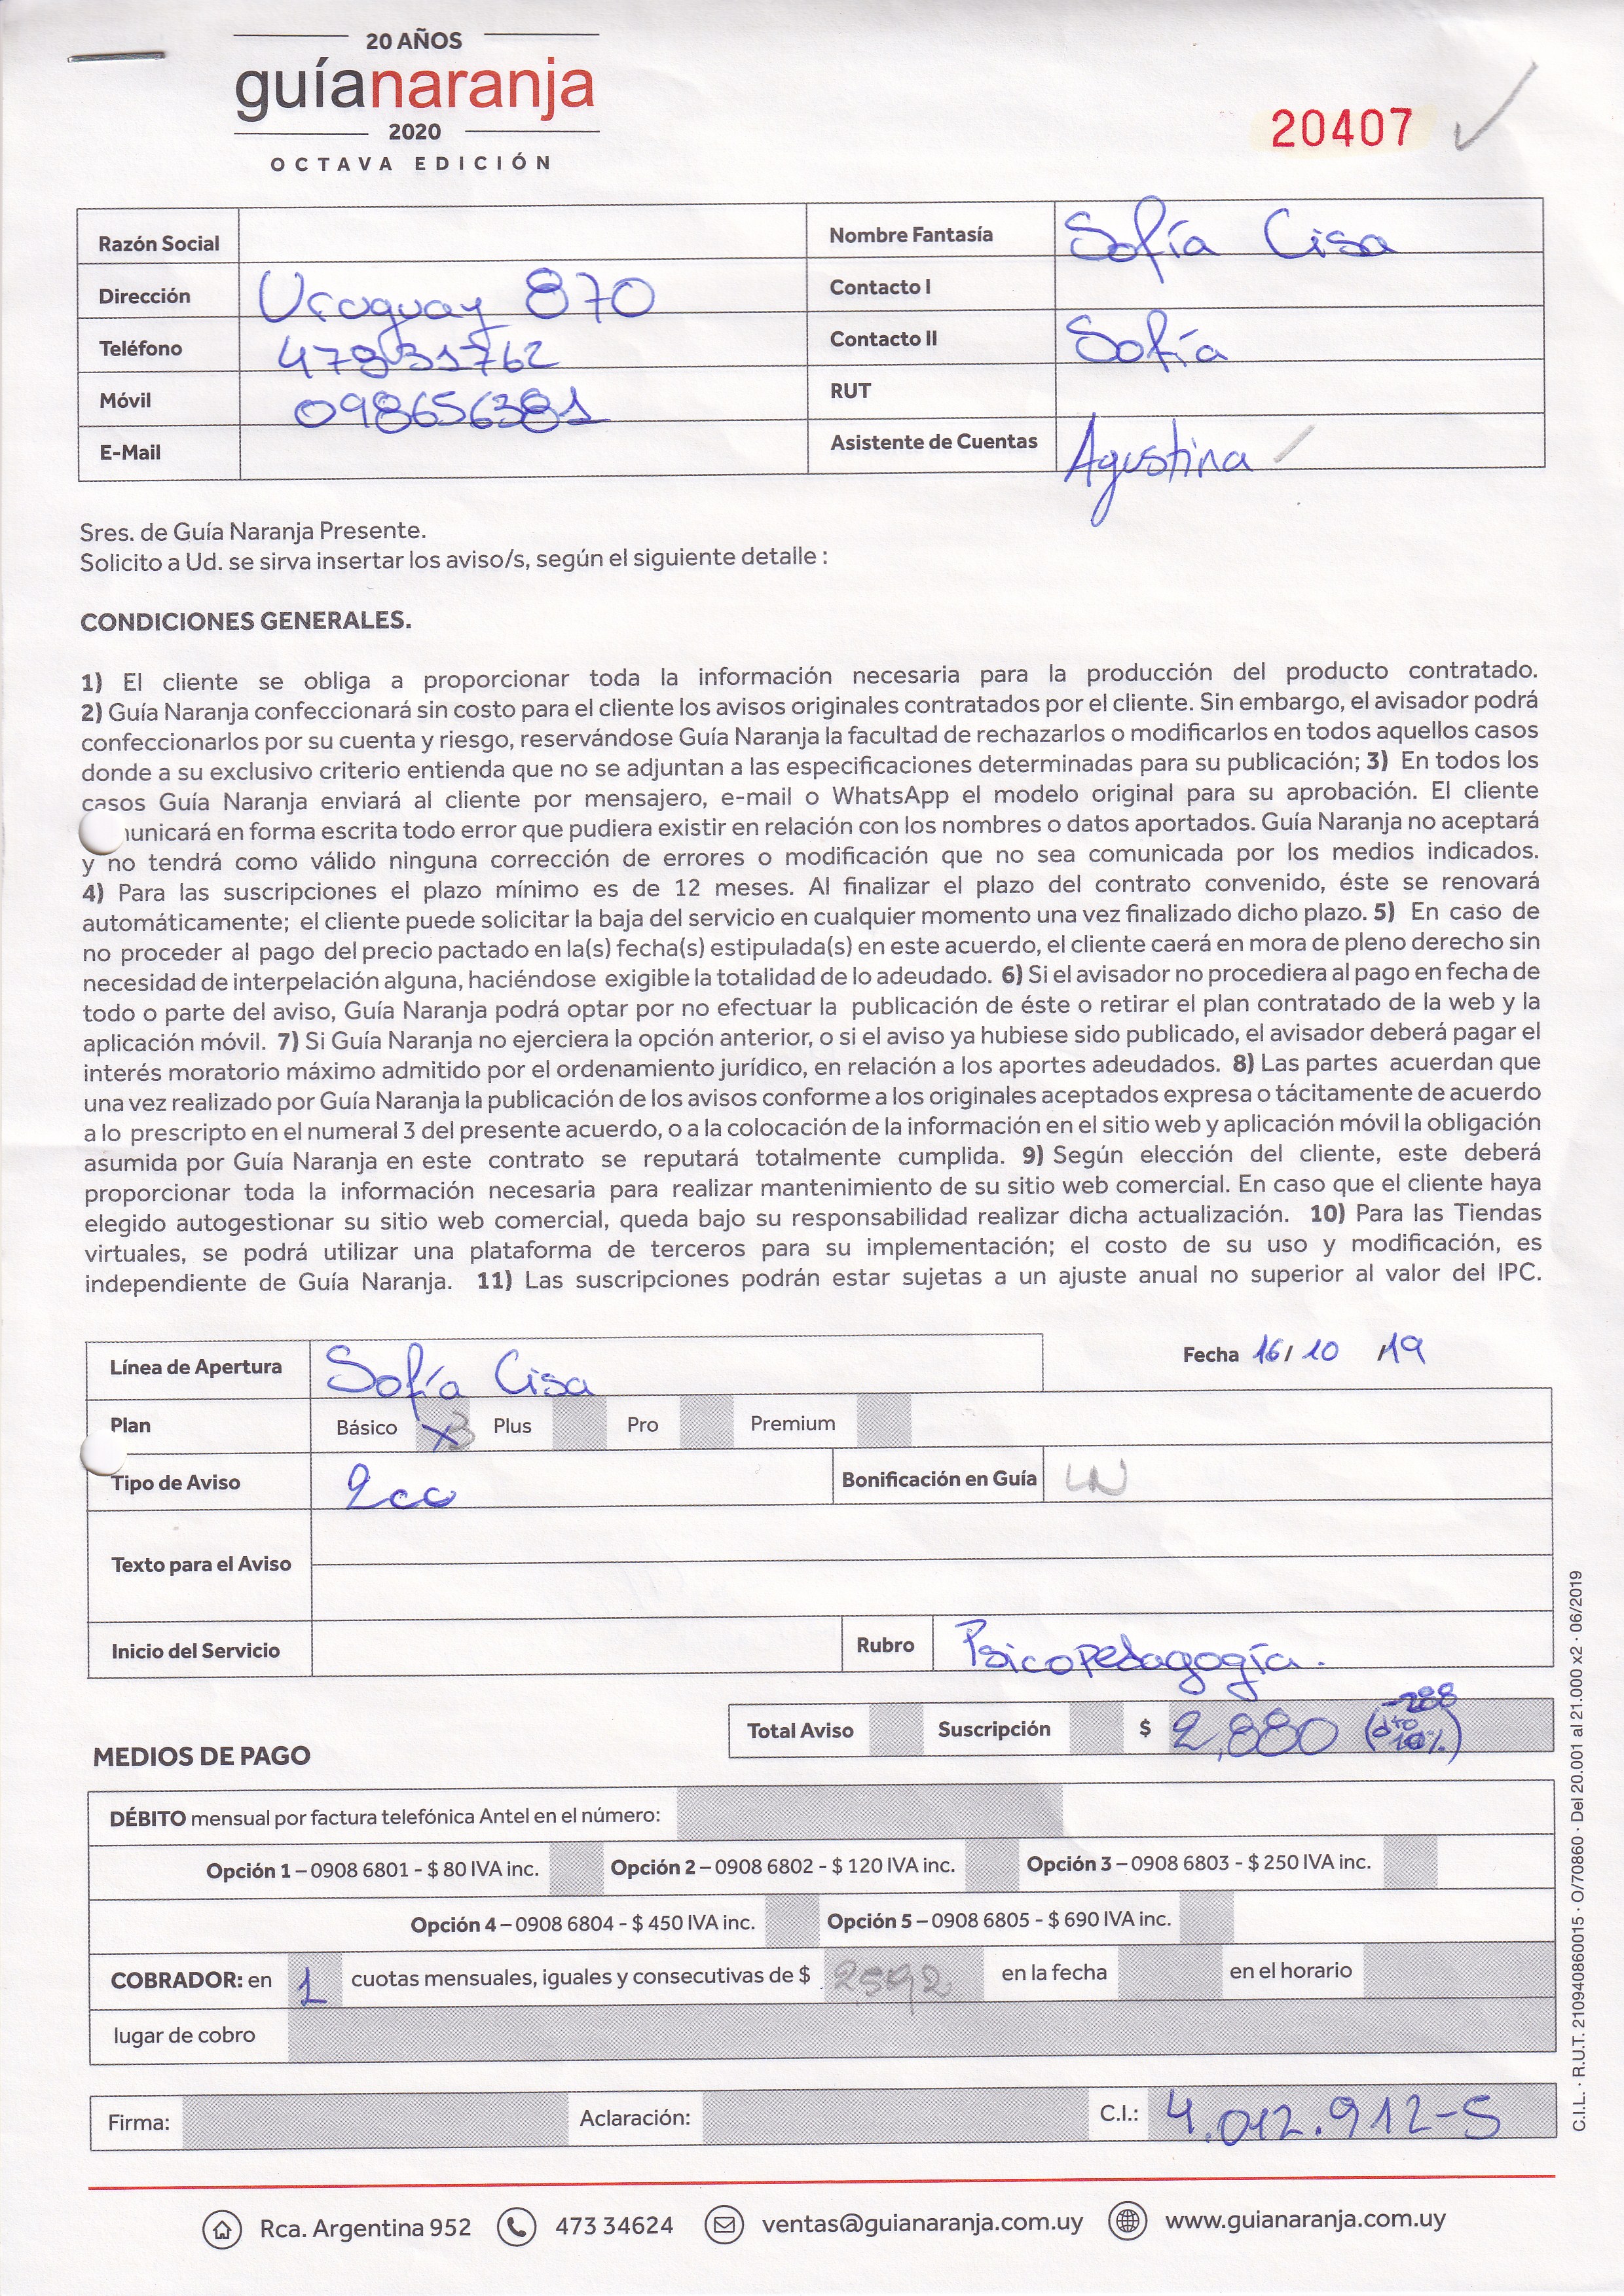 20 AÑOS
guíanaranja
2020
OCTAVA EDICIÓN
20407
Razón Social
Nombre Fantasía Sofía Cisa
Dirección Uruguay 870
Contacto I
Teléfono 47331762
Contacto II Sofía
Móvil 098656381
RUT
E-Mail
Asistente de Cuentas Agustina
Sres. de Guía Naranja Presente.
Solicito a Ud. se sirva insertar los aviso/s, según el siguiente detalle :
CONDICIONES GENERALES.
1) El cliente se obliga a proporcionar toda la información necesaria para la producción del producto contratado.
2) Guía Naranja confeccionará sin costo para el cliente los avisos originales contratados por el cliente. Sin embargo, el avisador podrá
confeccionarlos por su cuenta y riesgo, reservándose Guía Naranja la facultad de rechazarlos o modificarlos en todos aquellos casos
donde a su exclusivo criterio entienda que no se adjuntan a las especificaciones determinadas para su publicación; 3) En todos los
casos Guía Naranja enviará al cliente por mensajero, e-mail o WhatsApp el modelo original para su aprobación. El cliente
unicará en forma escrita todo error que pudiera existir en relación con los nombres o datos aportados. Guía Naranja no aceptará
y no tendrá como válido ninguna corrección de errores o modificación que no sea comunicada por los medios indicados.
4) Para las suscripciones el plazo mínimo es de 12 meses. Al finalizar el plazo del contrato convenido, éste se renovará
automáticamente; el cliente puede solicitar la baja del servicio en cualquier momento una vez finalizado dicho plazo. 5) En caso de
no proceder al pago del precio pactado en la(s) fecha(s) estipulada(s) en este acuerdo, el cliente caerá en mora de pleno derecho sin
necesidad de interpelación alguna, haciéndose exigible la totalidad de lo adeudado. 6) Si el avisador no procediera al pago en fecha de
todo o parte del aviso, Guía Naranja podrá optar por no efectuar la publicación de éste o retirar el plan contratado de la web y la
aplicación móvil. 7) Si Guía Naranja no ejerciera la opción anterior, o si el aviso ya hubiese sido publicado, el avisador deberá pagar el
interés moratorio máximo admitido por el ordenamiento jurídico, en relación a los aportes adeudados. 8) Las partes acuerdan que
una vez realizado por Guía Naranja la publicación de los avisos conforme a los originales aceptados expresa o tácitamente de acuerdo
a lo prescripto en el numeral 3 del presente acuerdo, o a la colocación de la información en el sitio web y aplicación móvil la obligación
asumida por Guía Naranja en este contrato se reputará totalmente cumplida. 9) Según elección del cliente, este deberá
proporcionar toda la información necesaria para realizar mantenimiento de su sitio web comercial. En caso que el cliente haya
elegido autogestionar su sitio web comercial, queda bajo su responsabilidad realizar dicha actualización. 10) Para las Tiendas
virtuales, se podrá utilizar una plataforma de terceros para su implementación; el costo de su uso y modificación, es
independiente de Guía Naranja. 11) Las suscripciones podrán estar sujetas a un ajuste anual no superior al valor del IPC.
Fecha 16/ 10 /19
Línea de Apertura Sofía Cisa
Plan Básico X Plus Pro Premium
Tipo de Aviso 2cc Bonificación en Guía LN
Texto para el Aviso
Inicio del Servicio Rubro Psicopedagogía.
Total Aviso Suscripción $ 2,880 -288 (dto 10%)
MEDIOS DE PAGO
DÉBITO mensual por factura telefónica Antel en el número:
Opción 1 – 0908 6801 - $ 80 IVA inc. Opción 2 – 0908 6802 - $ 120 IVA inc. Opción 3 – 0908 6803 - $ 250 IVA inc.
Opción 4 – 0908 6804 - $ 450 IVA inc. Opción 5 – 0908 6805 - $ 690 IVA inc.
COBRADOR: en 1 cuotas mensuales, iguales y consecutivas de $ 2592 en la fecha en el horario
lugar de cobro
Firma: Aclaración: C.I.: 4.012.912-5
C.I.L. · R.U.T. 210940860015 · O/70860 · Del 20.001 al 21.000 x2 · 06/2019
Rca. Argentina 952 473 34624 ventas@guianaranja.com.uy www.guianaranja.com.uy